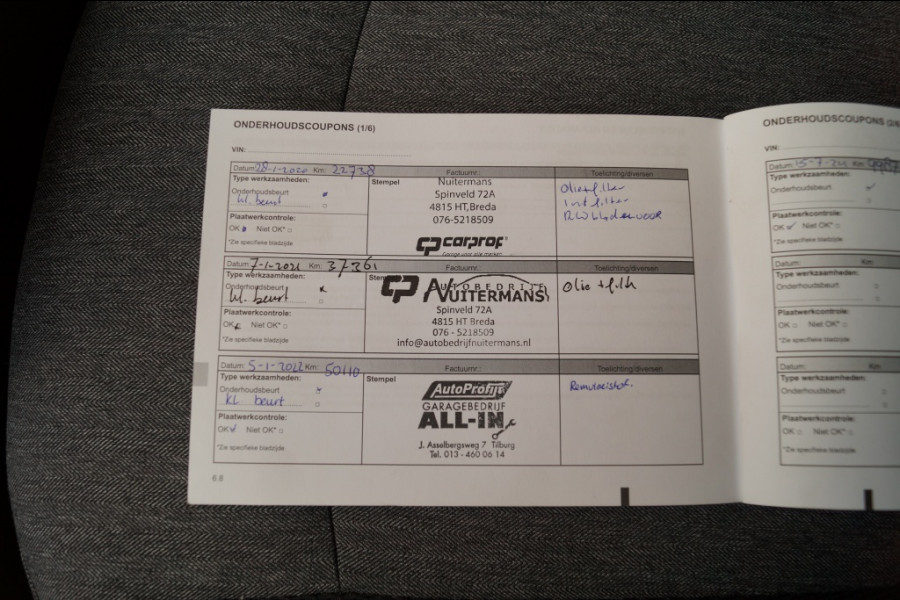 ONDERHOUDSCOUPONS (1/6)
VIN:
Datum: 28-1-2020 Km: 22738 Factuurnr.: Toelichting/diversen
Type werkzaamheden:
Onderhoudsbeurt
kl beurt
Plaatwerkcontrole:
OK Niet OK*
*Zie specifieke bladzijde
Stempel
Nuitermans
Spinveld 72A
4815 HT,Breda
076-5218509
CP carprof
Garage voor alle merken
Olie+filter
Int filter
Datum: 7-1-2021 Km: 37361 Factuurnr.: Toelichting/diversen
Type werkzaamheden:
Onderhoudsbeurt
kl. beurt
Plaatwerkcontrole:
OK Niet OK*
*Zie specifieke bladzijde
CP AUTOBEDRIJF
NUITERMANS
Spinveld 72A
4815 HT Breda
076 - 5218509
info@autobedrijfnuitermans.nl
Olie + filt
Datum: 5-1-2022 Km: 50110 Factuurnr.: Toelichting/diversen
Type werkzaamheden:
Onderhoudsbeurt
kl. beurt
Plaatwerkcontrole:
OK Niet OK*
*Zie specifieke bladzijde
Stempel
AutoProfijt
GARAGEBEDRIJF
ALL-IN
J. Asselbergsweg 7 Tilburg
Tel. 013 - 460 06 14
Remvloeistof.
6.8
ONDERHOUDSCOUPONS
VIN:
Datum: Km:
Type werkzaamheden:
Onderhoudsbeurt
Plaatwerkcontrole:
OK Niet OK*
*Zie specifieke bladzijde
Datum: Km
Type werkzaamheden:
Onderhoudsbeurt
Plaatwerkcontrole:
OK Niet OK*
*Zie specifieke bladzijde
Datum: Km
Type werkzaamheden:
Onderhoudsbeurt
Plaatwerkcontrole:
OK Niet OK*
*Zie specifieke bladzijde